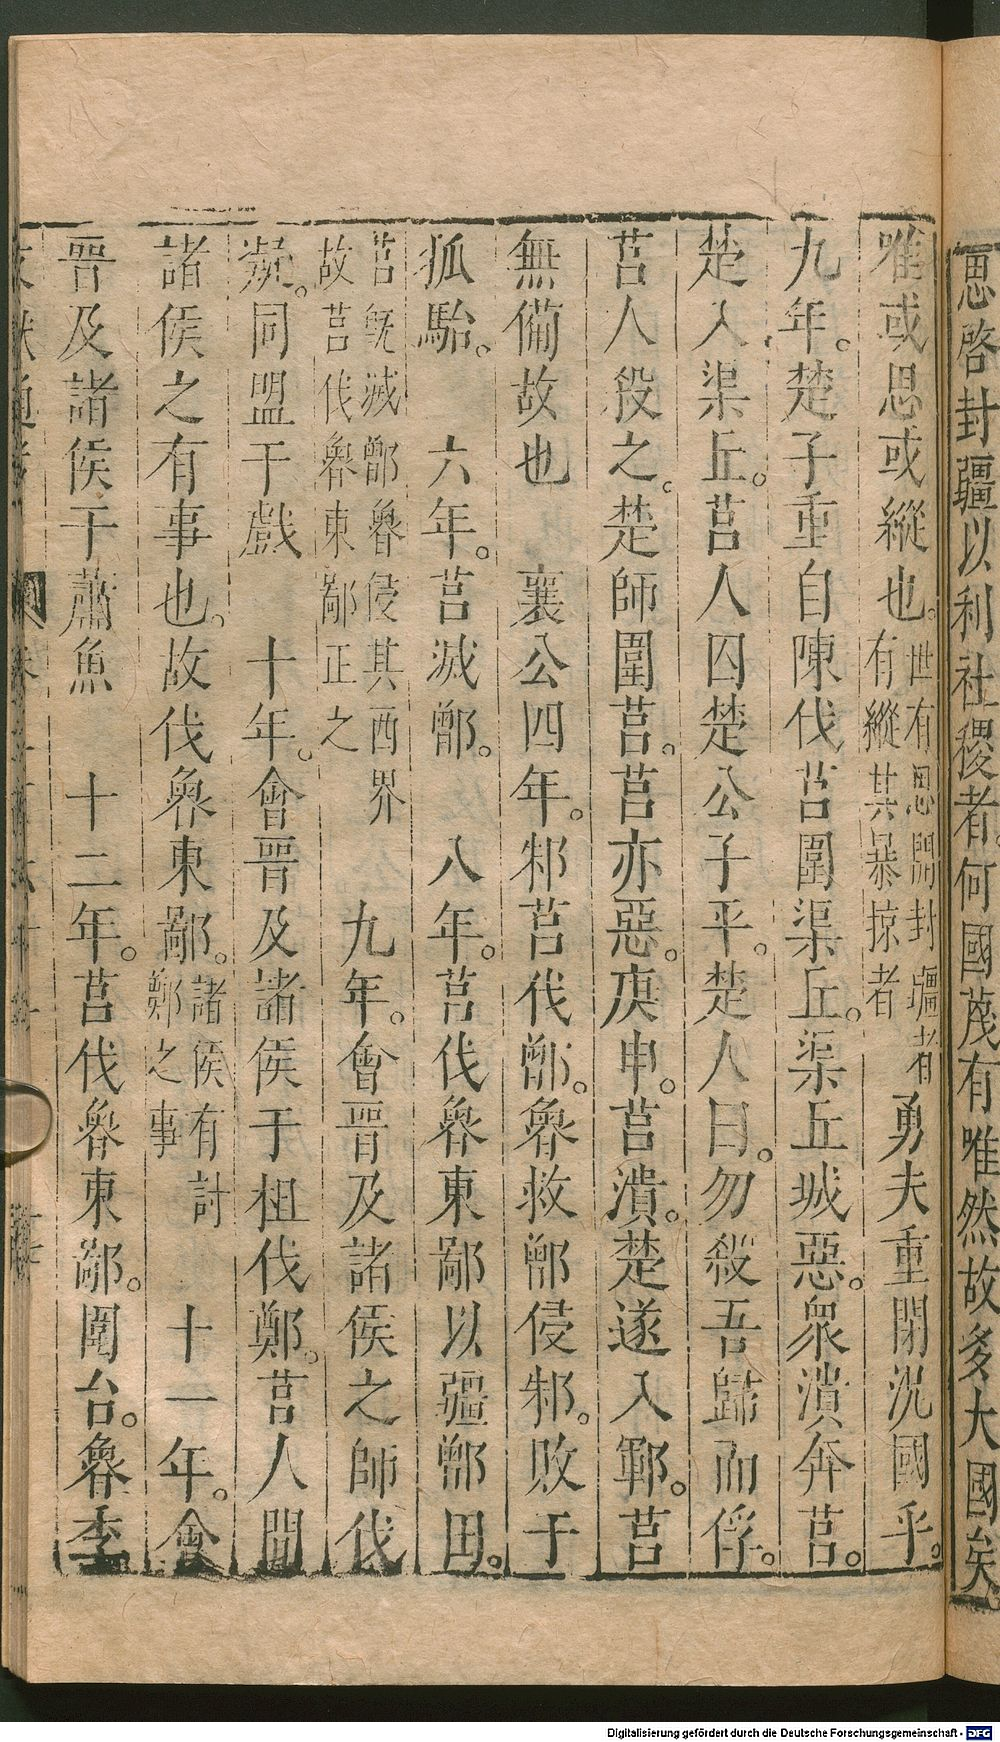 思啓封疆以利社稷者何國蔑有唯然故多大國矣
唯或思或縱也。世有思開封疆者有縱其暴掠者勇夫重閉況國乎。
九年。楚子重自陳伐莒圍渠丘。渠丘城惡。衆潰奔莒。
楚入渠丘。莒人囚楚公子平。楚人曰。勿殺吾歸而俘。
莒人殺之。楚師圍莒。莒亦惡。庚申。莒潰。楚遂入鄆。莒
無備故也　襄公四年。邾莒伐鄫。魯救鄫侵邾。敗于
狐駘。　六年。莒滅鄫。　八年。莒伐魯東鄙以疆鄫田。
莒旣滅鄫魯侵其西界故莒伐魯東鄙正之　九年。會晉及諸侯之師伐
鄭。同盟于戲　十年。會晉及諸侯于柤伐鄭。莒人間
諸侯之有事也。故伐魯東鄙。諸侯有討鄭之事　十一年。會
晉及諸侯于蕭魚　十二年。莒伐魯東鄙。圍台。魯季
Digitalisierung gefördert durch die Deutsche Forschungsgemeinschaft - DFG